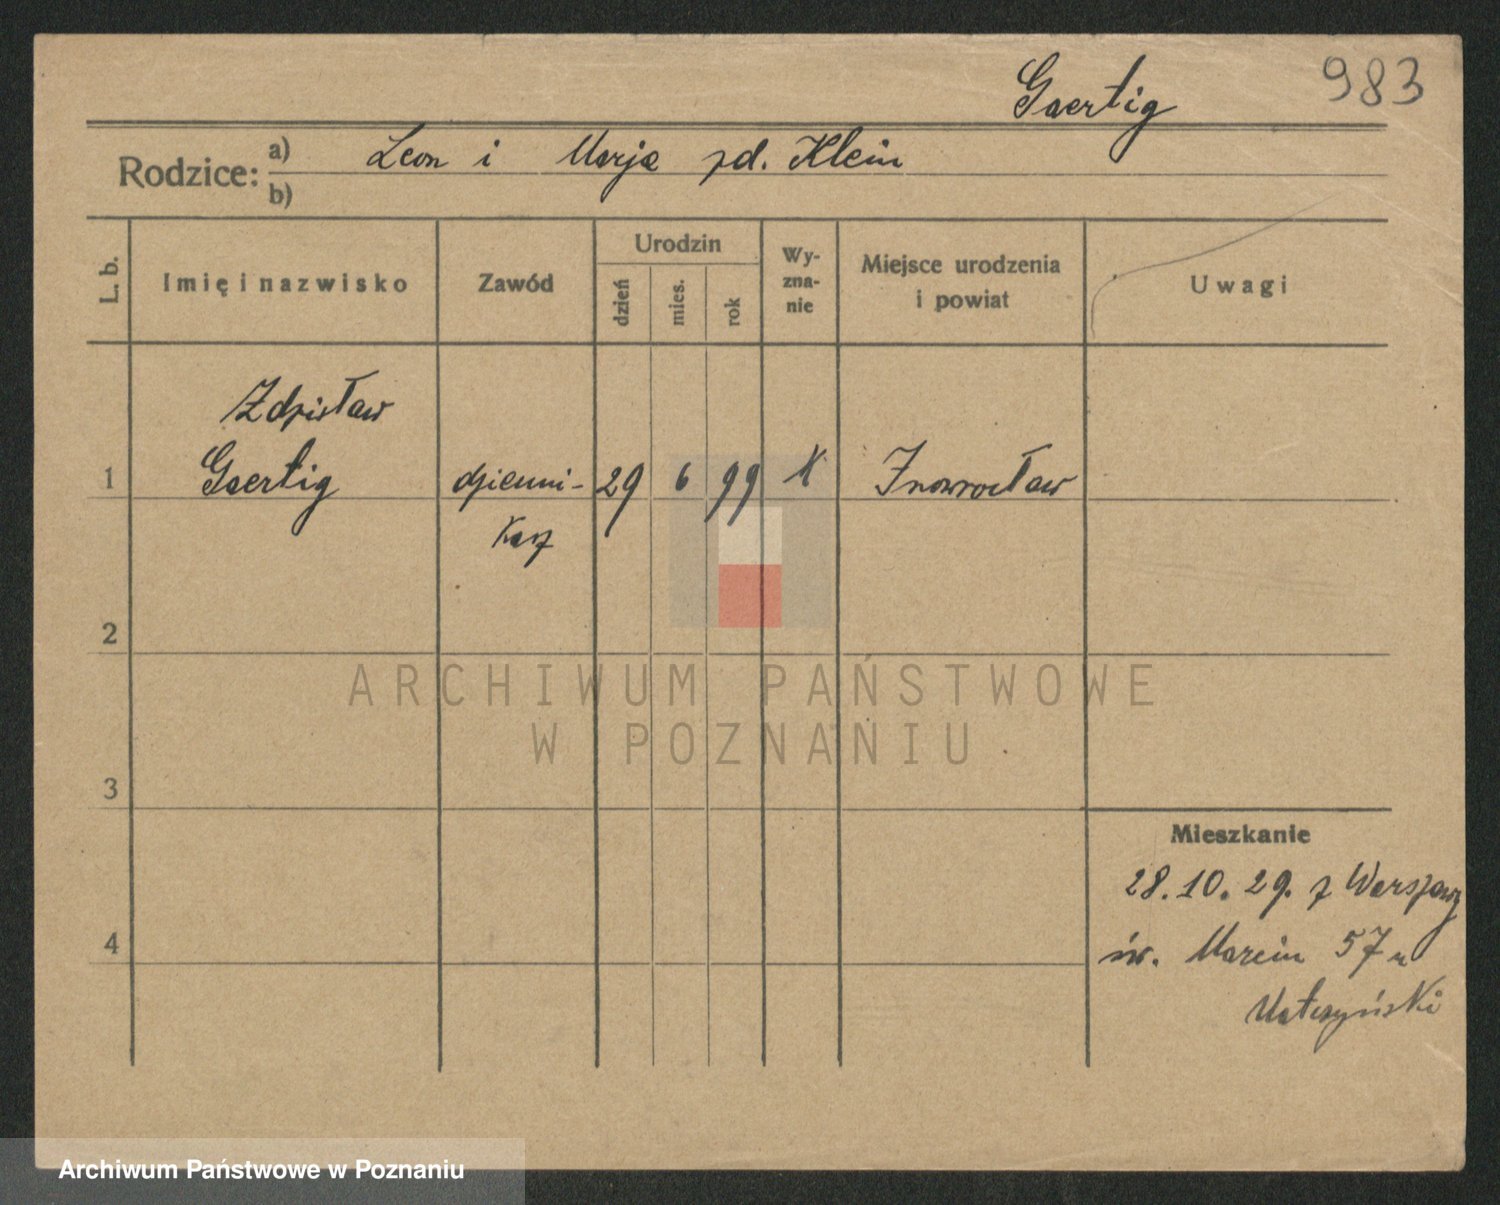 983
Gaertig
Rodzice: a) Leon i Marja zd. Klein
b)
L. b.
Imię i nazwisko
Zawód
Urodzin
dzień
mies.
rok
Wy-
zna-
nie
Miejsce urodzenia
i powiat
Uwagi
Zdzisław
1 Gaertig dzienni- 29 6 99 k Inowrocław
karz
2
3
4
Mieszkanie
28.10.29. z Warszawy
św. Marcin 57 u
ARCHIWUM PAŃSTWOWE
W POZNANIU
Archiwum Państwowe w Poznaniu